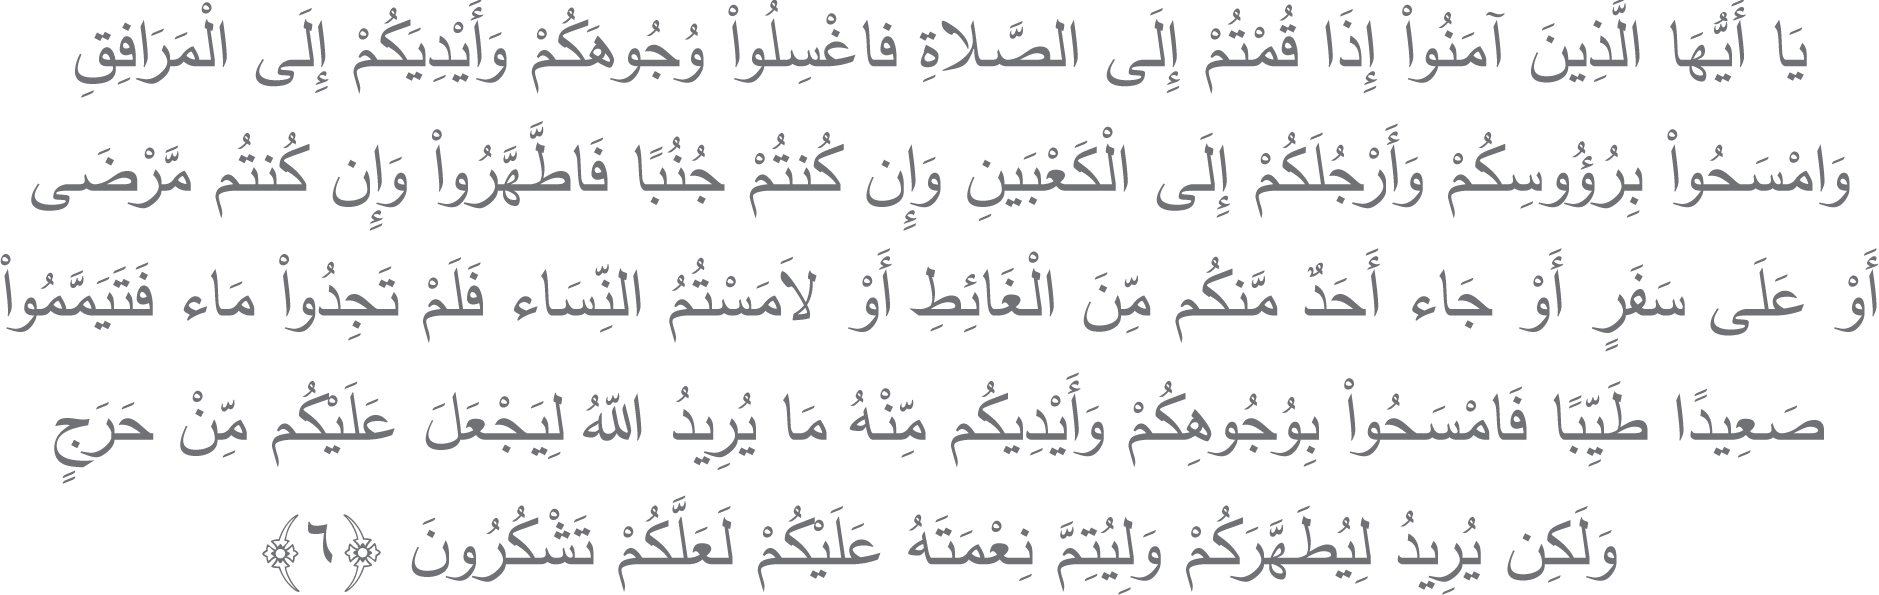 يَا أَيُّهَا الَّذِينَ آمَنُواْ إِذَا قُمْتُمْ إِلَى الصَّلاةِ فاغْسِلُواْ وُجُوهَكُمْ وَأَيْدِيَكُمْ إِلَى الْمَرَافِقِ
وَامْسَحُواْ بِرُؤُوسِكُمْ وَأَرْجُلَكُمْ إِلَى الْكَعْبَينِ وَإِن كُنتُمْ جُنُبًا فَاطَّهَّرُواْ وَإِن كُنتُم مَّرْضَى
أَوْ عَلَى سَفَرٍ أَوْ جَاء أَحَدٌ مَّنكُم مِّنَ الْغَائِطِ أَوْ لاَمَسْتُمُ النِّسَاء فَلَمْ تَجِدُواْ مَاء فَتَيَمَّمُواْ
صَعِيدًا طَيِّبًا فَامْسَحُواْ بِوُجُوهِكُمْ وَأَيْدِيكُم مِّنْهُ مَا يُرِيدُ اللّهُ لِيَجْعَلَ عَلَيْكُم مِّنْ حَرَجٍ
وَلَكِن يُرِيدُ لِيُطَهَّرَكُمْ وَلِيُتِمَّ نِعْمَتَهُ عَلَيْكُمْ لَعَلَّكُمْ تَشْكُرُونَ ﴿٦﴾